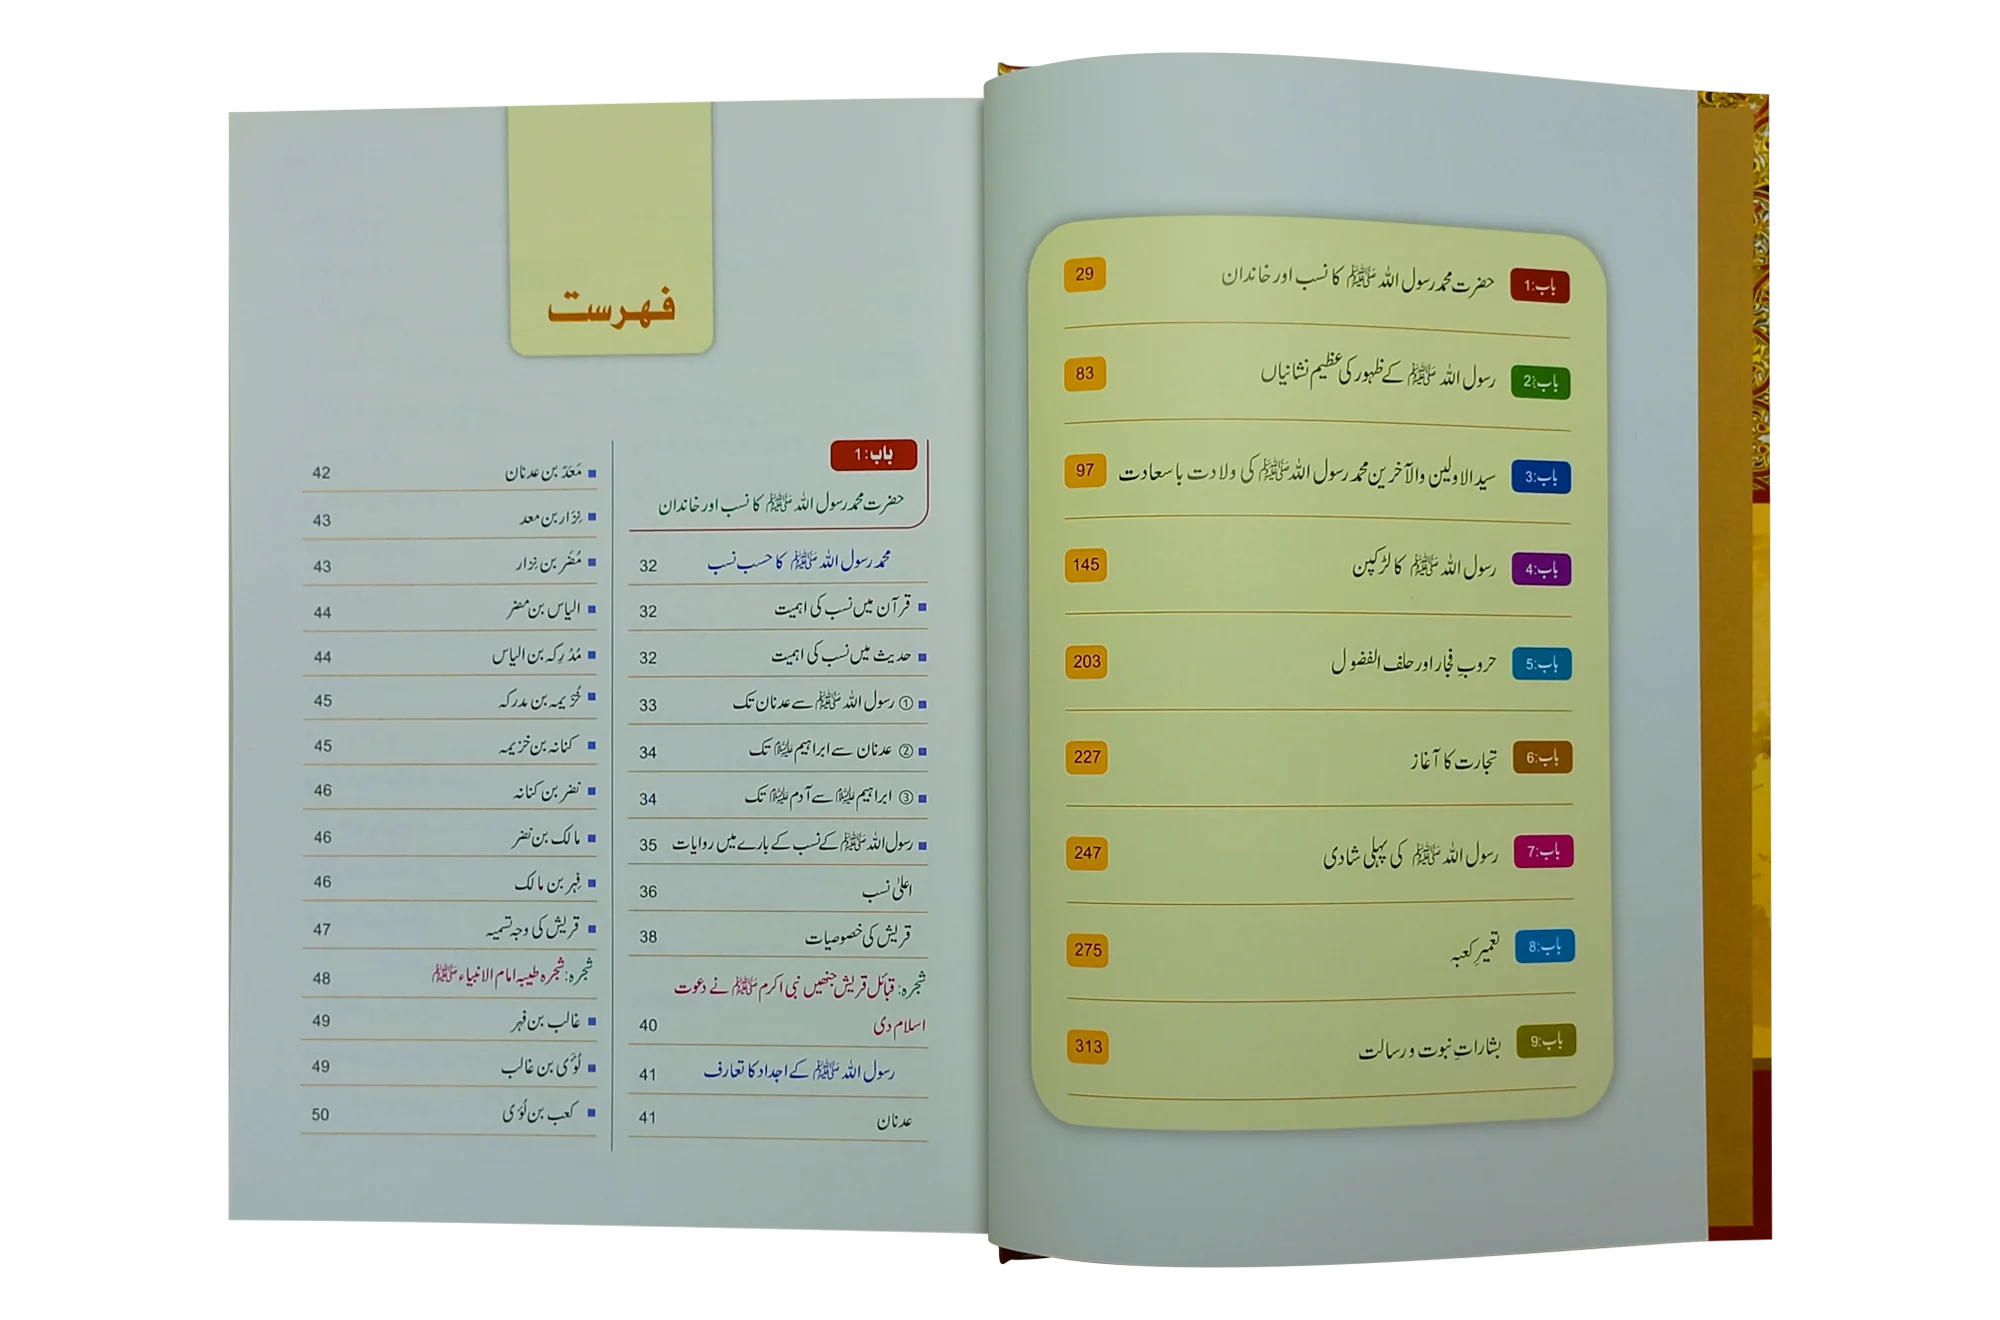 باب:1 حضرت محمد رسول اللہ ﷺ کا نسب اور خاندان 29
باب:2 رسول اللہ ﷺ کے ظہور کی عظیم نشانیاں 83
باب:3 سید الاولین والآخرین محمد رسول اللہ ﷺ کی ولادت باسعادت 97
باب:4 رسول اللہ ﷺ کا لڑکپن 145
باب:5 حروبِ فجار اور حلف الفضول 203
باب:6 تجارت کا آغاز 227
باب:7 رسول اللہ ﷺ کی پہلی شادی 247
باب:8 تعمیرِ کعبہ 275
باب:9 بشاراتِ نبوت و رسالت 313
فہرست
باب:1
حضرت محمد رسول اللہ ﷺ کا نسب اور خاندان
محمد رسول اللہ ﷺ کا حسب نسب 32
قرآن میں نسب کی اہمیت 32
حدیث میں نسب کی اہمیت 32
① رسول اللہ ﷺ سے عدنان تک 33
② عدنان سے ابراہیم علیہ السلام تک 34
③ ابراہیم علیہ السلام سے آدم علیہ السلام تک 34
رسول اللہ ﷺ کے نسب کے بارے میں روایات 35
اعلیٰ نسب 36
قریش کی خصوصیات 38
شجرہ: قبائل قریش جنھیں نبی اکرم ﷺ نے دعوت
اسلام دی 40
رسول اللہ ﷺ کے اجداد کا تعارف 41
عدنان 41
مَعَدّ بن عدنان 42
نِزار بن معد 43
مُضَر بن نزار 43
الیاس بن مضر 44
مُدْرِکہ بن الیاس 44
خُزَیمہ بن مدرکہ 45
کنانہ بن خزیمہ 45
نضر بن کنانہ 46
مالک بن نضر 46
فِہر بن مالک 46
قریش کی وجہ تسمیہ 47
شجرہ: شجرہ طیبہ امام الانبیاء ﷺ 48
غالب بن فہر 49
لُؤَی بن غالب 49
کعب بن لُؤَی 50